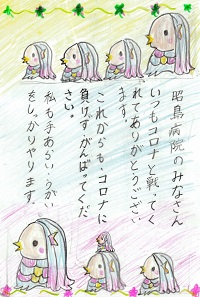 昭島病院のみなさん
いつもコロナと戦ってく
れてありがとうござい
ます。
これからも、コロナに
負けずがんばってくだ
さい。
私も手あらい、うがい
をしっかりやります。